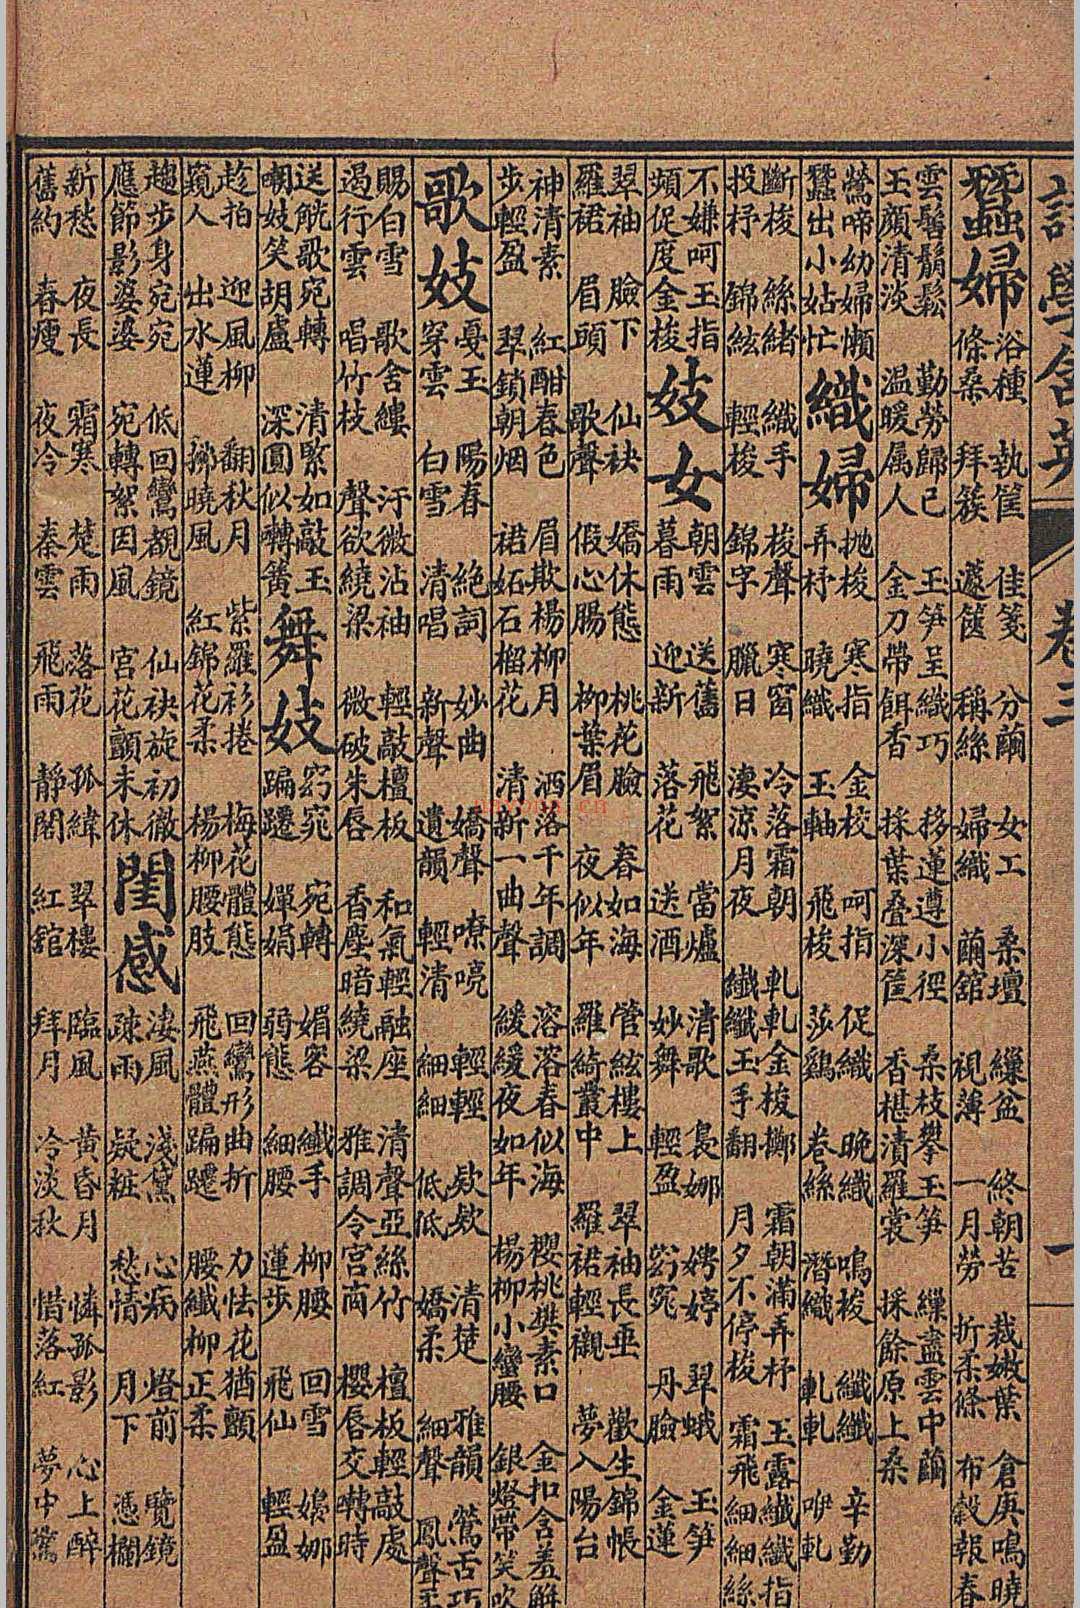 詩學含英 卷三 一
蠶婦
浴種 執筐 佳箋 分繭 女工 桑壇 繅盆 終朝苦 栽嫩葉 倉庚鳴曉
條桑 拜簇 蘧篋 稱絲 婦織 繭舘 視薄 一月勞 折柔條 布穀報春
雲鬢鬅鬆 勤勞歸已 玉笋呈織巧 移蓮遵小徑 桑枝攀玉笋 繅盡雲中繭
玉顏清淡 溫暖属人 金刀帶餌香 採葉叠深筐 香椹漬羅裳 採餘原上桑
鶯啼幼婦懶
蠶出小姑忙
織婦
抛梭 寒指 金梭 呵指 促織 晚織 鳴梭 纖纖 辛勤
弄杼 曉織 玉軸 飛梭 莎鷄 卷絲 潛織 軋軋 咿軋
斷梭 絲緒 織手 梭聲 寒窗 冷落霜朝 軋軋金梭擲 霜朝滿弄杼 玉露纖纖指
投杼 錦絃 輕梭 錦字 臘日 淒涼月夜 纖纖玉手翻 月夕不停梭 霜飛細細絲
不嫌呵玉指
頻促度金梭
妓女
朝雲 送舊 飛絮 當爐 清歌 裊娜 娉婷 翠蛾 玉笋
暮雨 迎新 落花 送酒 妙舞 輕盈 窈窕 丹臉 金蓮
翠袖 臉下 仙袂 嬌休態 桃花臉 春如海 管絃樓上 翠袖長垂 歡生錦帳
羅裙 眉頭 歌聲 假心腸 柳葉眉 夜似年 羅綺叢中 羅裙輕襯 夢入陽台
神清素 紅酣春色 眉欺楊柳月 洒落千年調 溶溶春似海 櫻桃樊素口 金扣含羞解
步輕盈 翠鎖朝烟 裙妬石榴花 清新一曲聲 緩緩夜如年 楊柳小蠻腰 銀燈帶笑吹
歌妓
戞玉 陽春 絶詞 妙曲 嬌聲 嘹喨 輕輕 欵欵 清楚 雅韻 鶯舌巧
穿雲 白雪 清唱 新聲 遺韻 輕清 細細 低低 嬌柔 細聲 鳳聲
賜白雪 歌舍縷 汗微沾袖 輕敲檀板 和氣輕融座 清聲亞絲竹 檀板輕敲處
遏行雲 唱竹枝 聲欲繞梁 微破朱唇 香塵暗繞梁 雅調令宮商 櫻唇交囀時
送觥歌宛轉 清緊如敲玉
嘲妓笑胡盧 深圓似囀簧
舞妓
窈窕 宛轉 媚容 纖手 柳腰 回雪 嬝娜
蹁躚 嬋娟 弱態 細腰 蓮步 飛仙 輕盈
趁拍 迎風柳 翻秋月 紫羅衫捲 梅花體態 回鸞形曲折 力怯花猶顫
窺人 出水蓮 擲曉風 紅錦花柔 楊柳腰肢 飛燕體蹁躚 腰纖柳正柔
趨步身宛宛 低回鸞覩鏡 仙袂旋初徹
應節影婆娑 宛轉絮因風 宮花顫未休
閨感
淒風 淺黛 心病 燈前 覽鏡
疎雨 凝粧 愁情 月下 憑欄
新愁 夜長 霜寒 楚雨 落花 孤緯 翠樓 臨風 黄昏月 憐孤影 心上醉
舊約 春瘦 夜冷 秦雲 飛雨 靜閣 紅舘 拜月 冷淡秋 惜落紅 夢中驚